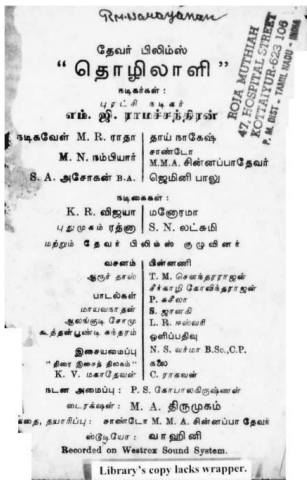 RM.Narayanan
ROJA MUTHIAH
47, HOSPITAL STREET
KOTTAIYUR-623 106
P. M. DIST - TAMIL NADU - INDIA
தேவர் பிலிம்ஸ்
“ தொழிலாளி ”
நடிகர்கள் :
புரட்சி நடிகர்
எம். ஜி. ராமச்சந்திரன்
நடிகவேள் M. R. ராதா தாய் நாகேஷ்
M. N. நம்பியார் சாண்டோ
M.M.A. சின்னப்பாதேவர்
S. A. அசோகன் B.A. ஜெமினி பாலு
நடிகைகள் :
K. R. விஜயா மனோரமா
புதுமுகம் ரத்னா S. N. லட்சுமி
மற்றும் தேவர் பிலிம்ஸ் குழுவினர்
வசனம் பின்னணி
ஆரூர் தாஸ் T. M. சௌந்தரராஜன்
சீர்காழி கோவிந்தராஜன்
பாடல்கள் P. சுசீலா
மாயவநாதன் S. ஜானகி
ஆலங்குடி சோமு L. R. ஈஸ்வரி
கூத்தன்பூண்டி சுந்தரம் ஒளிப்பதிவு
இசையமைப்பு N. S. வர்மா B.Sc.,C.P.
“திரை இசைத் திலகம்” கலை
K. V. மகாதேவன் C. ராகவன்
நடன அமைப்பு : P. S. கோபாலகிருஷ்ணன்
டைரக்ஷன் : M. A. திருமுகம்
கதை, தயாரிப்பு : சாண்டோ M. M. A. சின்னப்பா தேவர்
ஸ்டூடியோ : வாஹினி
Recorded on Westrex Sound System.
Library's copy lacks wrapper.